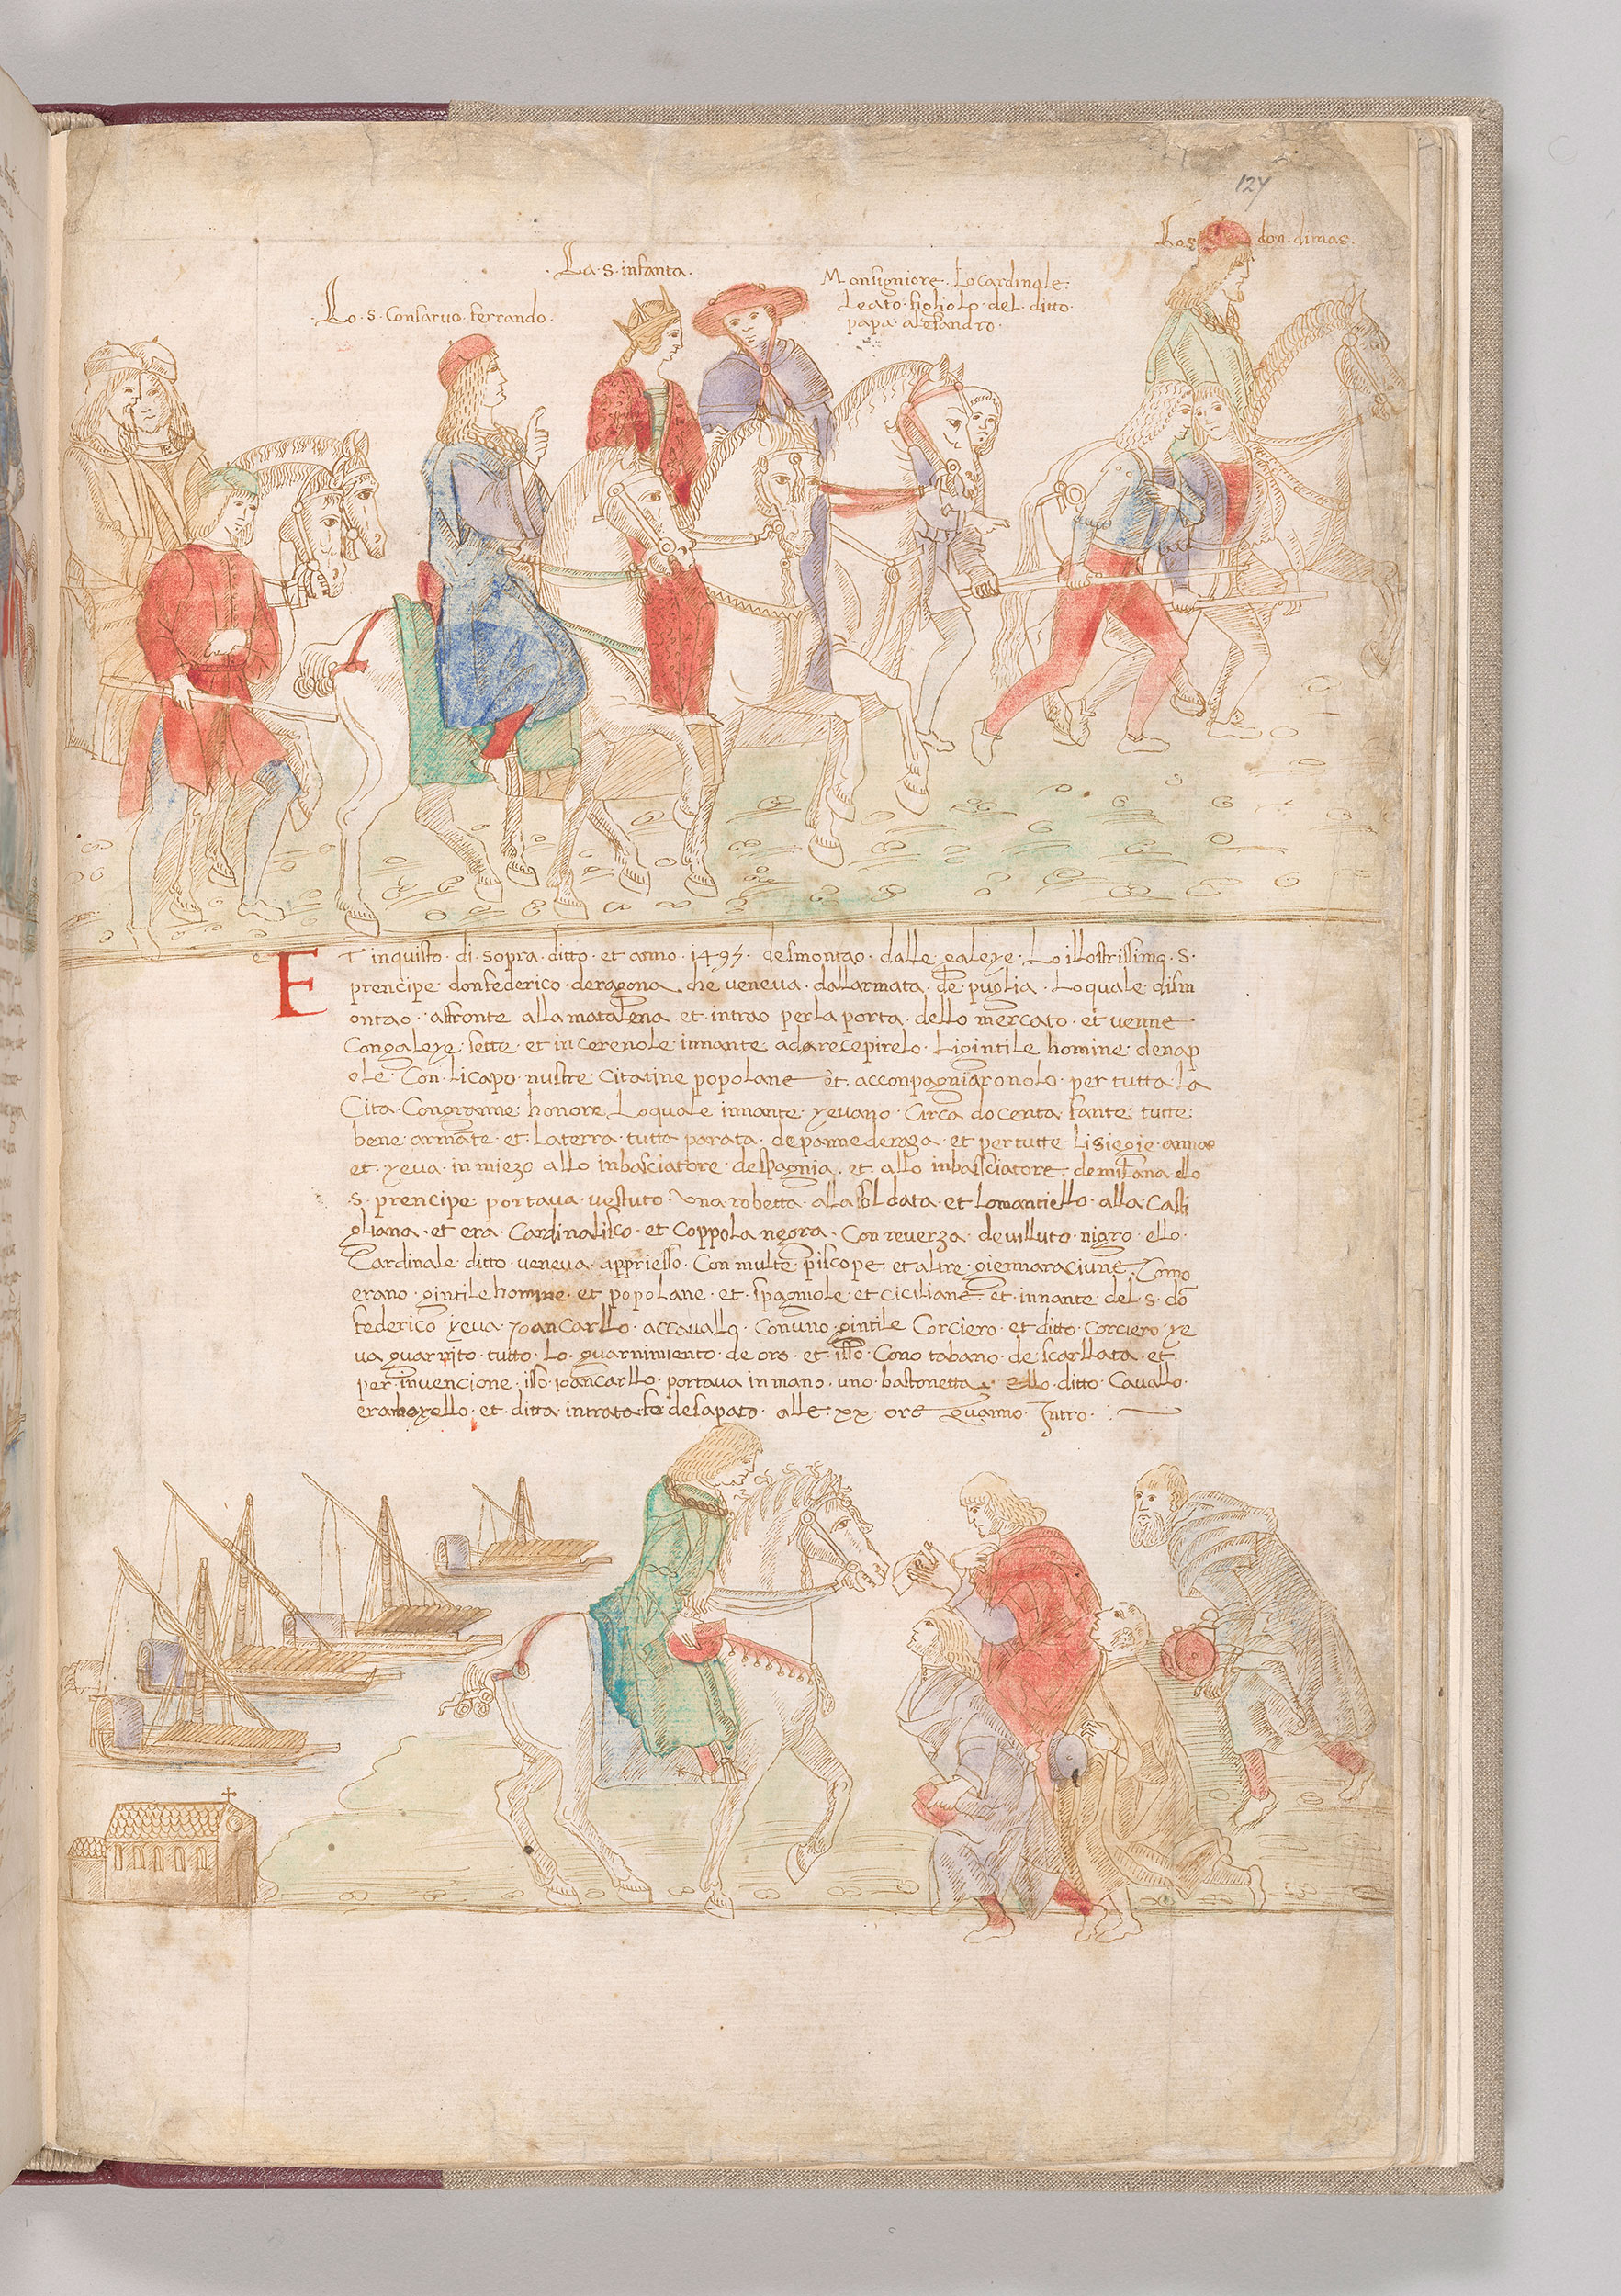 127
Lo s don · dimas ·
· La · s · infanta ·
Monsigniore · Lo cardinale ·
Leato · figliolo · del · ditto ·
papa · alesandro ·
· Lo · s · Consaruo · ferrando ·
ET inquisto · di · sopra · ditto · et anno · 1495 · desmontao · dalle galeye · Lo illostrissimo · S ·
prencipe donfederico · deragona · che veneva · dallarmata · de puglia · Loquale · dism
ontao · affronte alla matalena · et · intrao perla porta · dello mercato · et venne
Congaleye · sette · et in · innante · adarecepirelo · Ligintile homine · denap
ole · Con · licapo nustre · Citatine popolane et · acconpagniaronolo · per tutta · la
Cita · Congranne · honore · Loquale · innante · yevano · Circa docenta · fante · tutte ·
bene · armate · et · laterra · tutta parata · depanne deraza · et per tutte · lisiegie ·
et · yeva · in miezo allo inbasciatore · despagnia · et · allo inbasciatore · demilana ello
· S · prencipe · portava · vestuto · una robetta · alla soldata · et lomantiello · alla Casti
gliana · et era · Cardinalisco · et Coppola negra · Con reverza · devilluto · nigro · ello ·
Cardinale · ditto · veneva · appriesso · Con multe piscope · et altre · Como
erano · gintile homine · et popolane · et · spagniole · et ciciliane · et · innante · del · S · do
federico · yeva · Joan Carllo · accavallo · Conuno · gintile Corciero · et ditto · corciero · ye
va guarnito · tutto · Lo · guarnimiento · de oro · et · isso · Cono tabano · de scarllata · et
per · invencione · isso · ioancarllo · portava in mano · uno · bastonetta · ello · ditto · Cavallo ·
era · et · ditta intrata · fo desapato · alle · xx · ore Quanno Intro ·